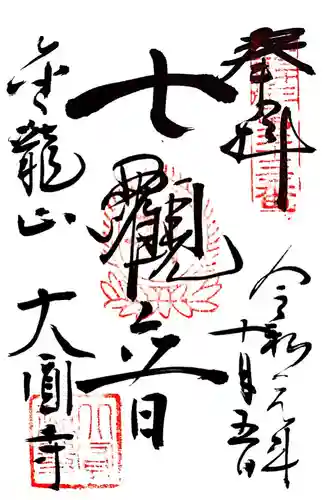 奉拝
令和元年
十月五日
七觀音
金龍山
大圓寺